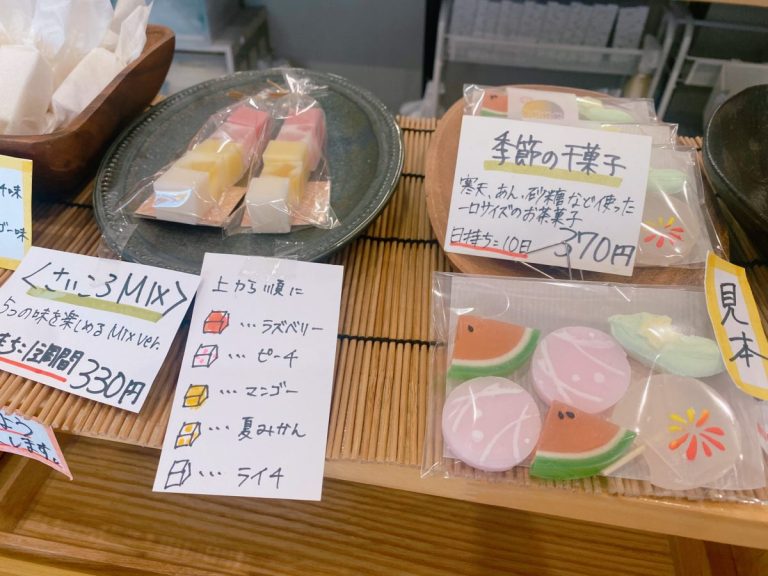 チ味
ゴー味
<さいころMIX>
5つの味を楽しめるMIX ver.
もち:1週間
330円
よう
します。
上から順に
…ラズベリー
…ピーチ
…マンゴー
…夏みかん
…ライチ
季節の干菓子
寒天、あん、砂糖など使った
一口サイズのお茶菓子
日持ち:10日
370円
見本